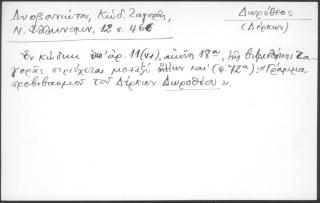 Δυοβουνιώτου, Κώδ. Ζαγορᾶς,
Ν. Ἑλληνομν. 12 σ. 466
Δωρόθεος
(Δέρκων)
Ἐν κώδικι ὑπ' ἀρ. 11 (41), αἰῶνος 18ου, τῆς βιβλιοθήκης Ζα-
γορᾶς περιέχεται μεταξὺ ἄλλων καὶ (σ. 72α) "Γράμμα
προβιβασμοῦ τοῦ Δέρκων Δωροθέου».